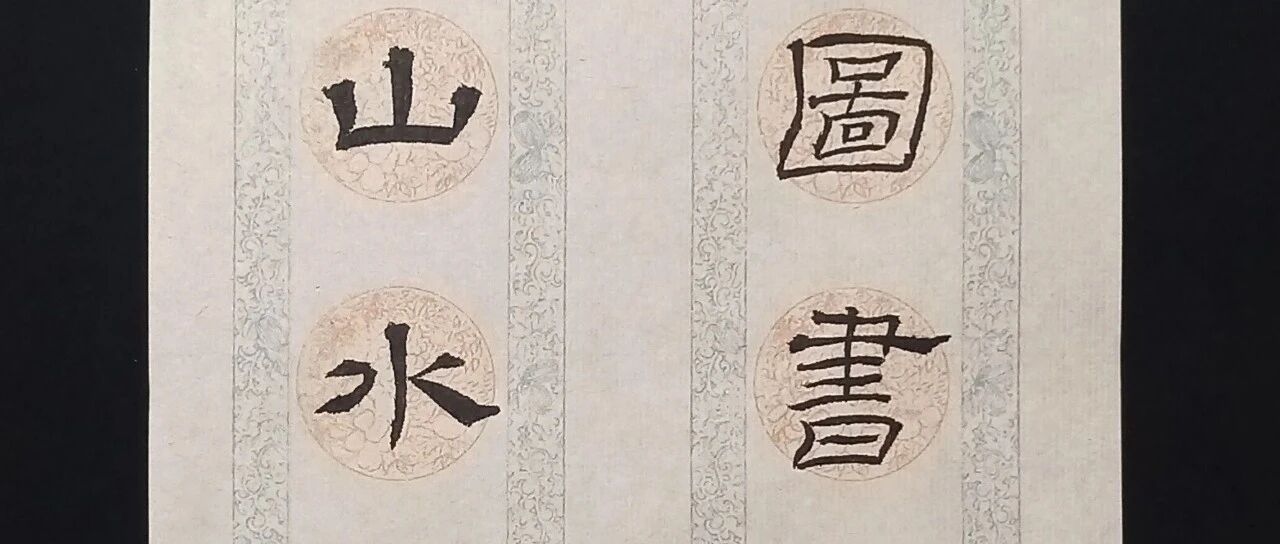 圖書
山水